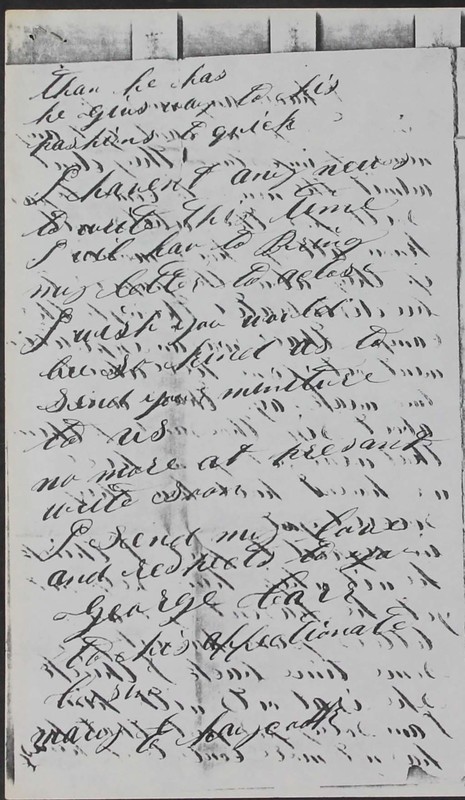 than he has
he givs way to his
pashins to quick
I havent any news
to write this time
I will hav to Bring
my letter to a close
I wish you would
be so kind as to
send your miniture
to us
no more at presant
write soon
I send my love
and respects to you
George Carr
to his affectionate
Cosine
mary J